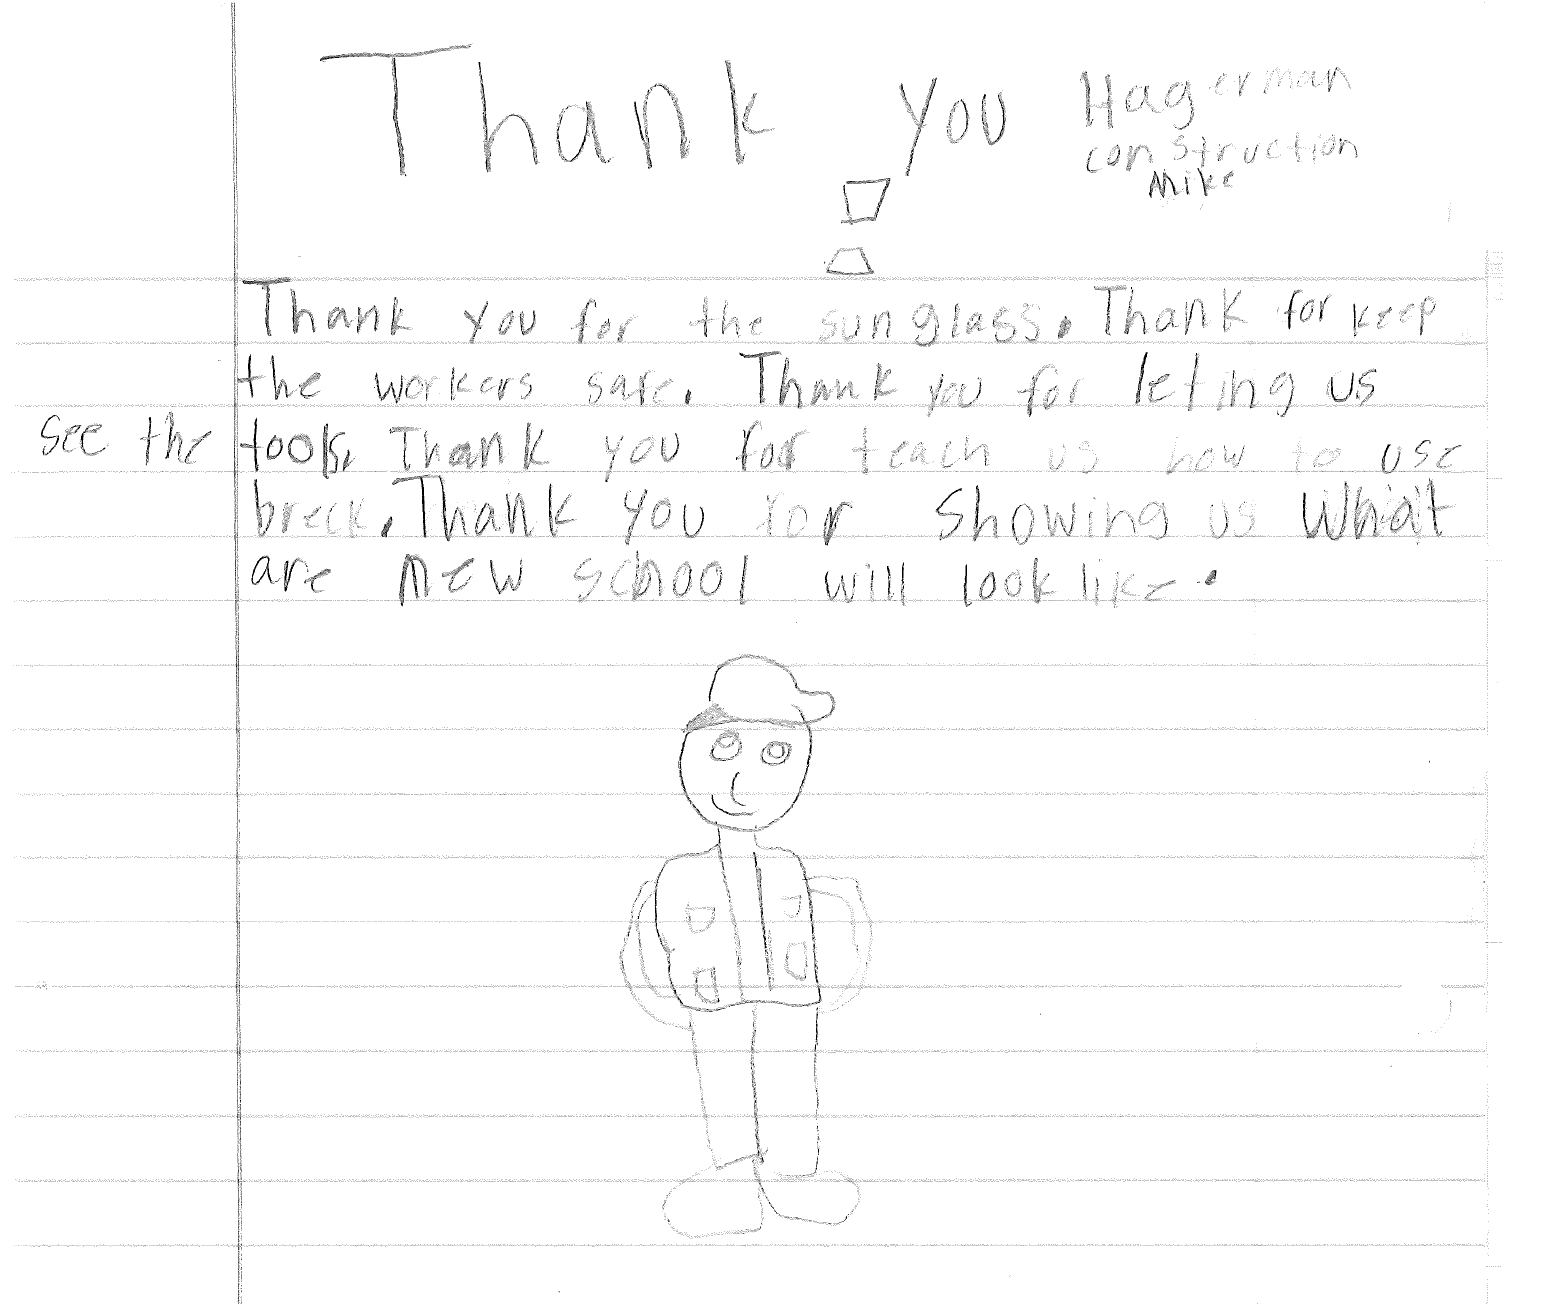 Thank you Hagerman
construction
Mike
!
Thank you for the sunglass. Thank for keep
the workers safe. Thank you for leting us
see the tools. Thank you for teach us how to use
breck. Thank you for showing us what
are new school will look like.